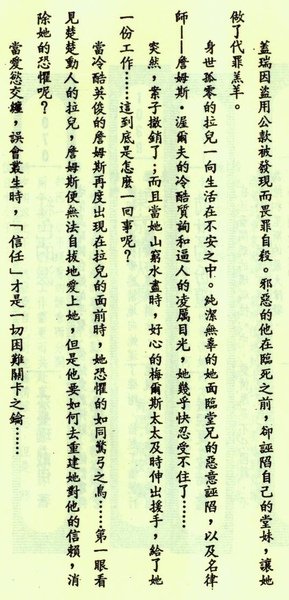 蓋瑞因盜用公款被發現而畏罪自殺。邪惡的他在臨死之前，卻誣陷自己的堂妹，讓她
做了代罪羔羊。
身世孤零的拉兒一向生活在不安之中。純潔無辜的她面臨堂兄的惡意誣陷，以及名律
師——詹姆斯．渥爾夫的冷酷質詢和逼人的凌厲目光，她幾乎快忍受不住了……
突然，案子撤銷了；而且當她山窮水盡時，好心的梅爾斯太太及時伸出援手，給了她
一份工作……這到底是怎麼一回事呢？
當冷酷英俊的詹姆斯再度出現在拉兒的面前時，她恐懼的如同驚弓之鳥……第一眼看
見楚楚動人的拉兒，詹姆斯便無法自拔地愛上她，但是他要如何去重建她對他的信賴，消
除她的恐懼呢？
當愛慾交纏，誤會叢生時，「信任」才是一切困難關卡之鑰……